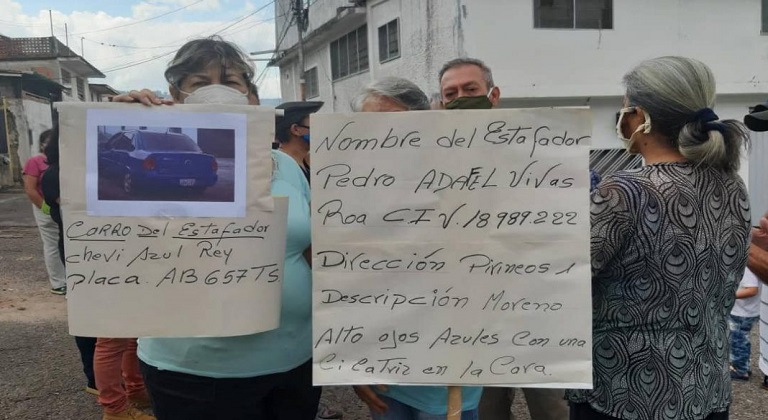 CARRO Del Estafador
chevi Azul Rey
placa. AB657TS
Nombre del Estafador
Pedro ADAEL Vivas
Roa C I V. 18989.222
Dirección Pirineos 1
Descripción Moreno
Alto ojos Azules Con una
Cicatriz en la Cara.